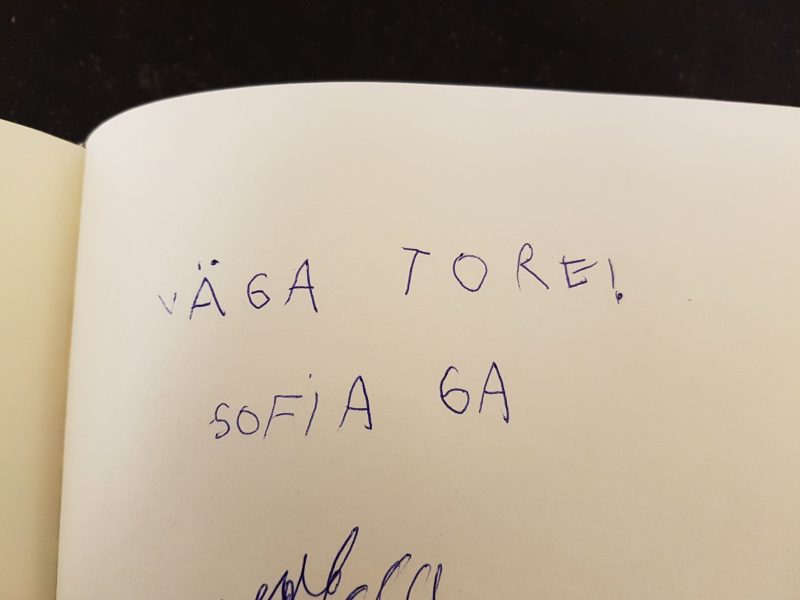 VÄGA TORE!
SOFiA 6A